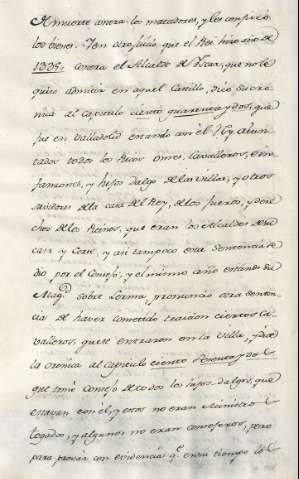 A muerte contra los matadores, y les confiscó
los bienes. Ten otro juicio que el Rei hizo año de
1335. contra el Alcalde de Iscar, que no le
quiso admitir en aquel Castillo, dice su cro-
nica al capitulo ciento quarenta y dos, que
fue en Valladolid estando con el Rey aiun-
tados todos los Ricos omes, Cavalleros, è in-
fanzones, y hijos dalgo de las villas, y otros
savidores de la casa del Rey, de los fueros, y dere-
chos de los Reinos, que eran los Alcaldes de su
casa y Corte, y asi tampoco esta sentencia se
dio por el Consejo; y el mismo año estando su
Mag.d sobre Lerma, pronunció otra senten-
cia de haver cometido traicion ciertos Ca-
valleros, que se entraron en la villa, y dice
la cronica al capitulo ciento sesenta y dos
que tomó consejo de todos los hijos dalgo, que
estavan con él, y estos no eran Ministros
togados, y algunos no eran consejeros, pero
para provar con evidencia q.e en su tiempo los